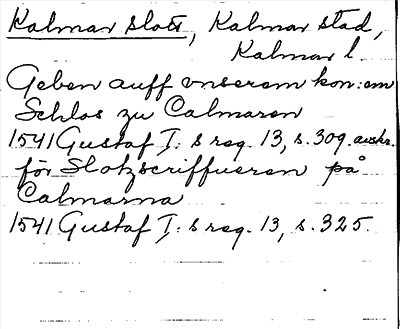 Kalmar slott, Kalmar stad,
Kalmar l.
Geben auff vnserem kon:em
Schlos zu Calmaren
1541 Gustaf I: s reg. 13, s. 309. avskr.
för Slotzscriffueren på
Calmarna
1541 Gustaf I: s reg. 13, s. 325.